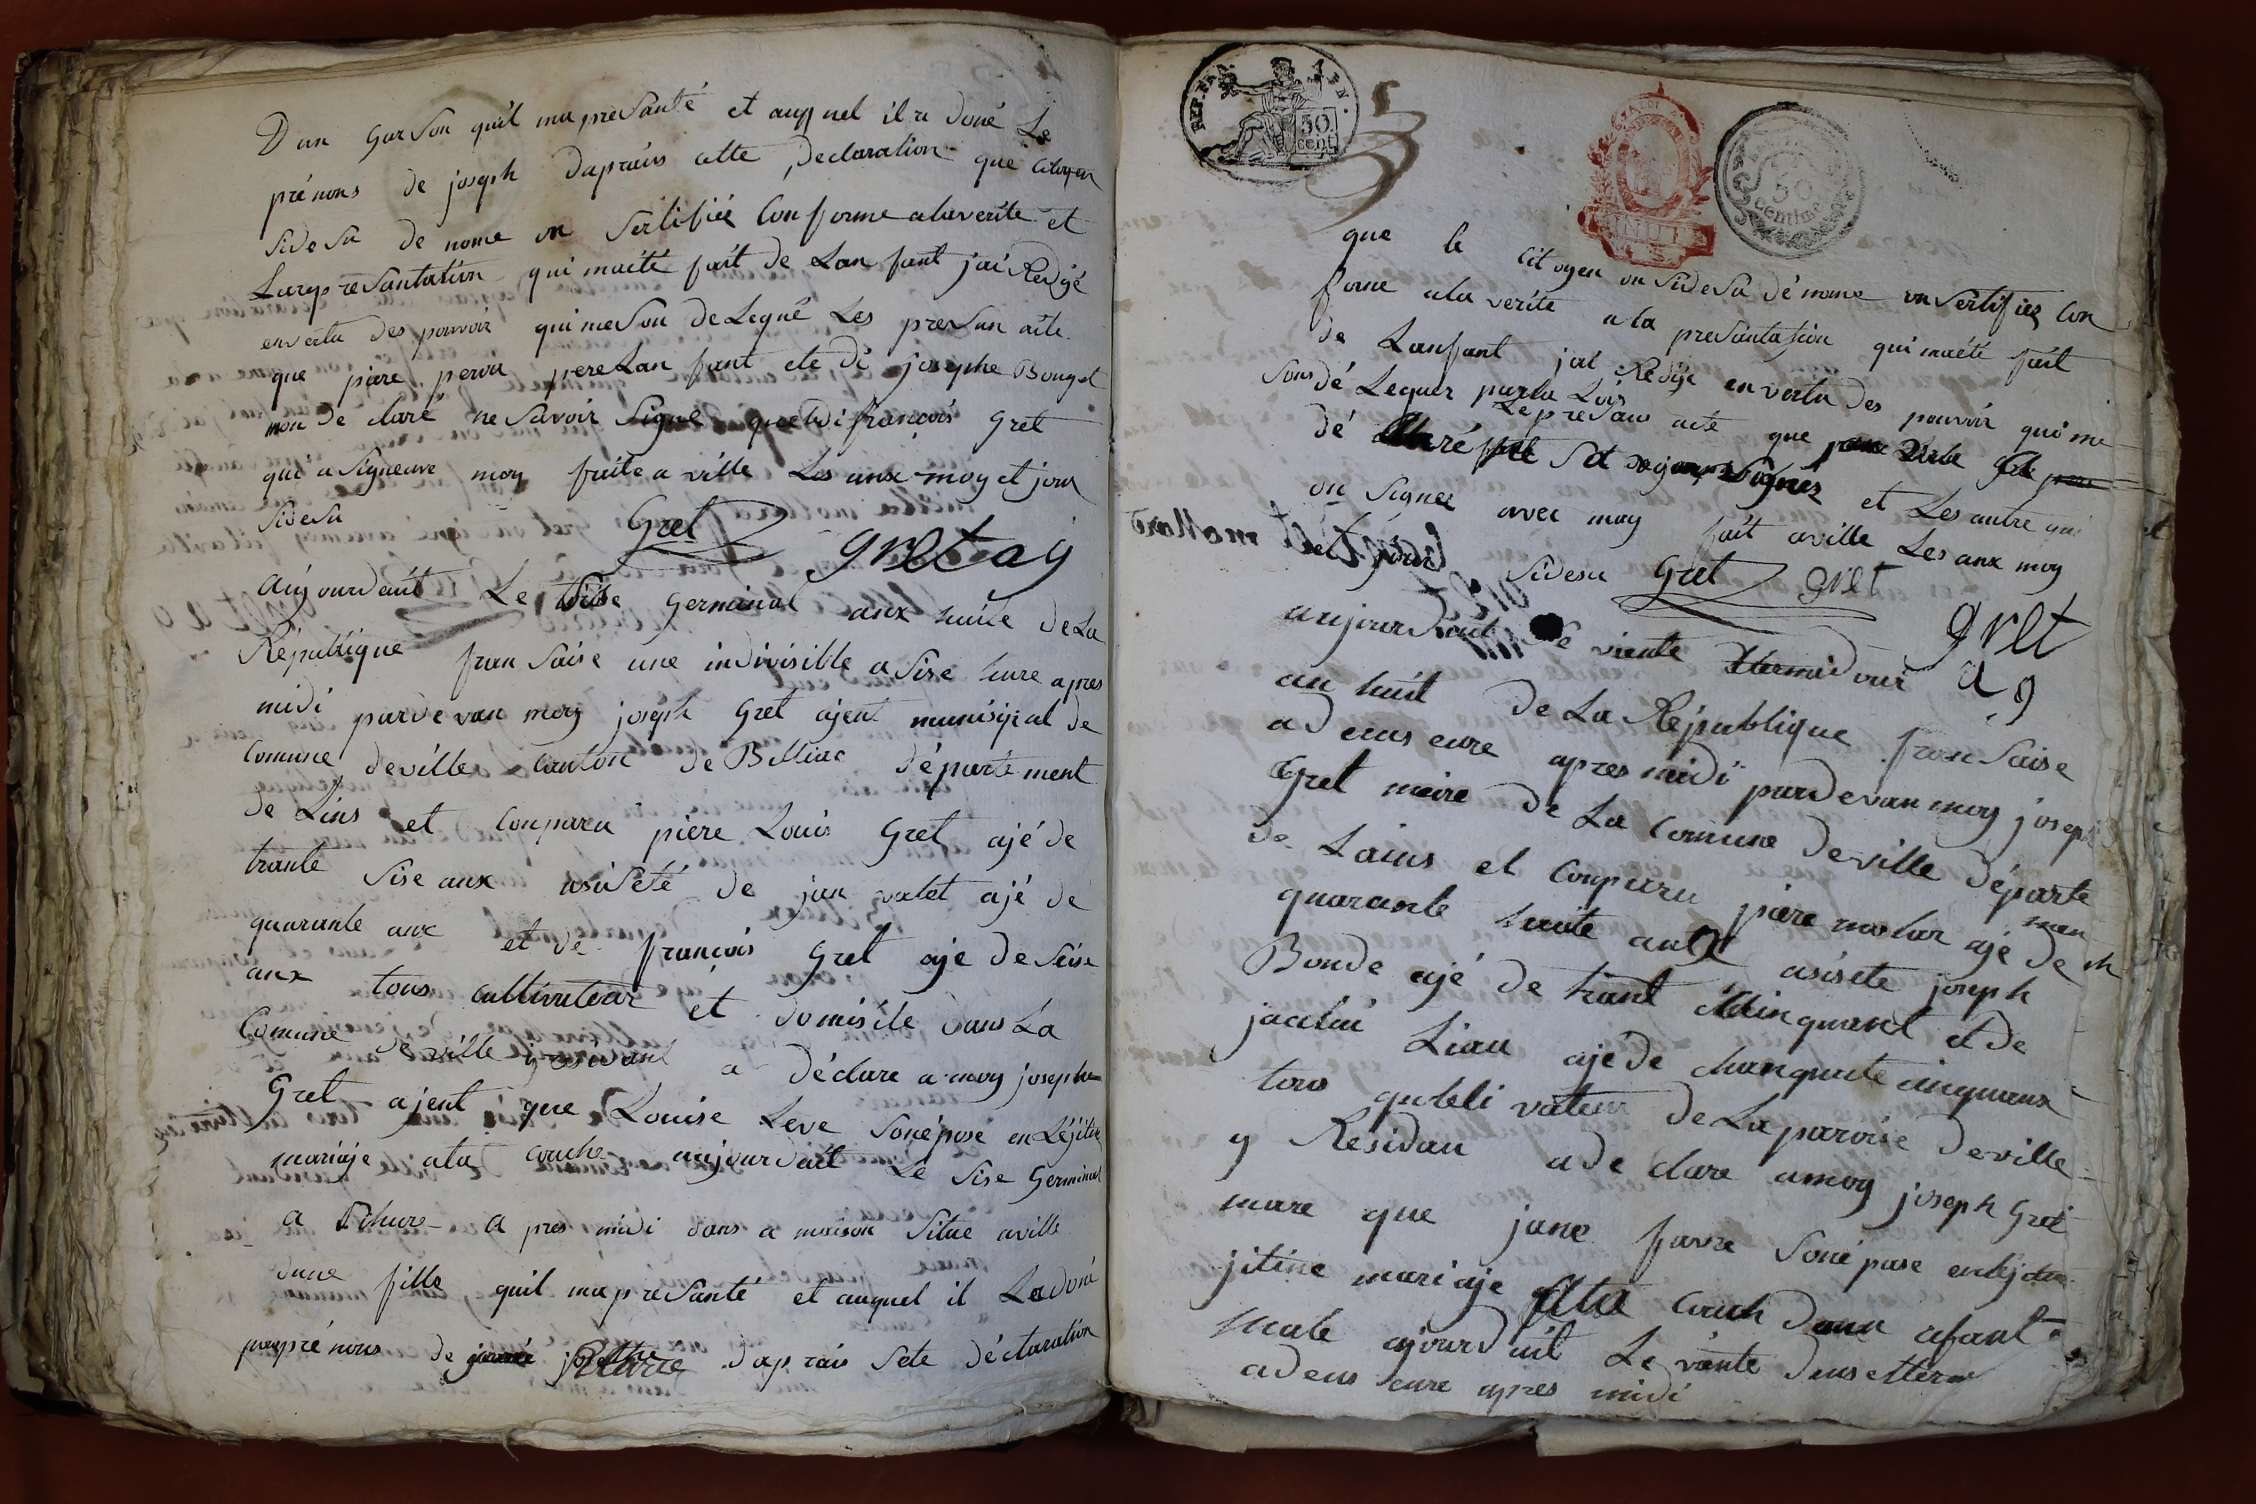 Dun garson quil ma presanté et auquel il a doné Le
prénons de joseph daprais cette declaration que citoyen
sidesu de nome on sertifiée Conforme alaverite et
Lareprésantation qui maété fait de Lanfant jai Redigé
envertu des pouvoir qui meson deLegué Les presan acte
que piere perou pere Lanfant ete di josephe Bouget
mon declaré ne savoir signe que Ledi françois Gret
qui a signe avec moy faite a ville Les anx moy et jour
sidesu Gret gret ag
aujourdeuit Le sise germinal anx huite de La
Republique fransaise une indivisible a sise heure apres
midi pardevan moy joseph Gret ajent munisipal de
Comune deville canton de Billiac département
de Lins et Conparu piere Louis Gret ajé de
trante sise anx asisété de jan valet ajé de
quarante anx et de françois Gret aje de seise
anx tous cultivateur et domisile dans La
Comune de ville y residant a déclare a moy josephe
Gret ajent que Louise Leve son épose en Léjitime
mariaje ala couche aujourdait Le sise Germinal
a heure a pres midi dans a maison situe aville
dune fille quil ma presanté et auquel il La doné
pour prénons de josette daprais sete déctaration
REP. FRA. 50 cent.
50 centimes
que le citoyen on sidesu dénome on sertifiez Con
forme ala verite a la presantation qui maété fait
de Lanfant jai Redije en vertu des pouvoir qui me
sons dé Leguer par la Lois
Lepresant acte que
dé et Les autre qui
on signer avec moy fait aville Les anx moy
et jour sidesu Gret gret
gret
aujourdhuit Le vinte thermidour a g
an huit de La Républlique fransaise
adeus eure apres midi pardevan moy joseph
Gret maire de La Comune deville départe
man
de Lains et Conparu piere molar ajé de
quarante huite anx asisete joseph
Bonde ajé de trant et de
Liau ajé de cinquante cinquanx
tous qulti vateur de La paroise deville
y Residan a de clare amoy joseph Gret
mare que jane favre son épase en Léj
jitine mariaje ala couch daun afant
male ajourduit Le vinte
adeus eure apres midi